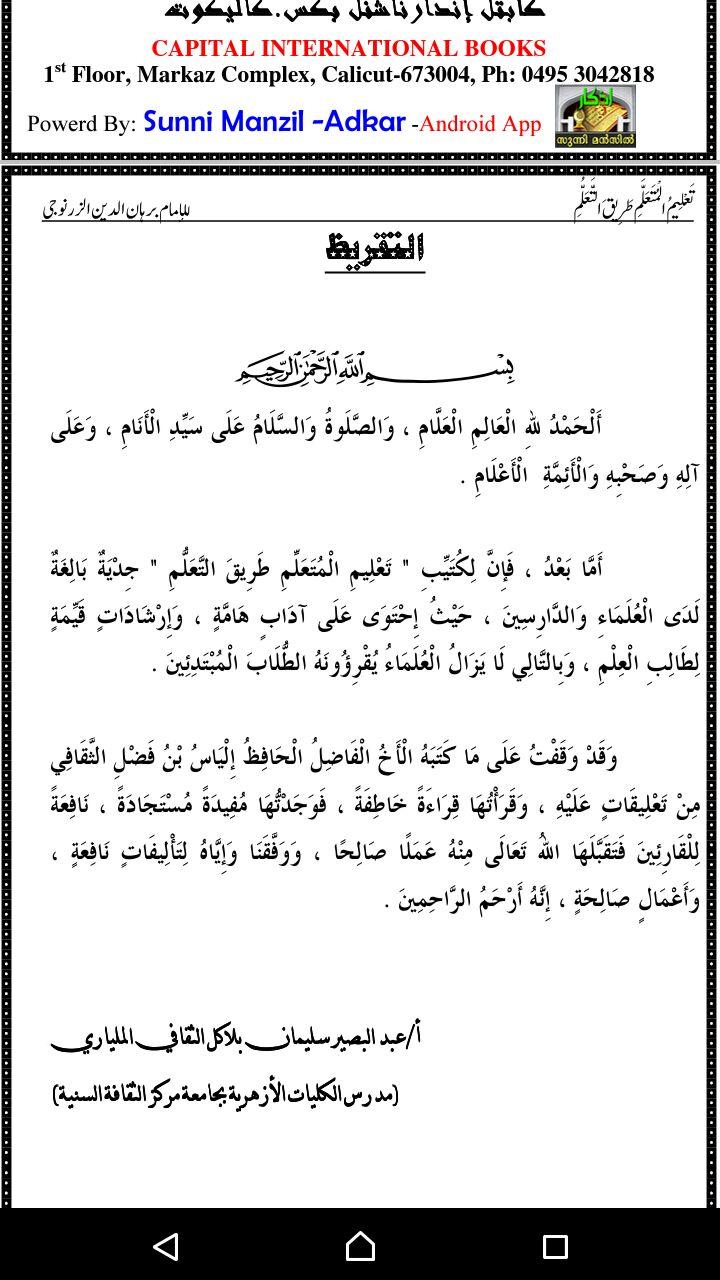 كابيتل إنتدارناشنل بكس.كاليكوت
CAPITAL INTERNATIONAL BOOKS
1st Floor, Markaz Complex, Calicut-673004, Ph: 0495 3042818
Powerd By: Sunni Manzil -Adkar -Android App
اذكار
സുന്നി മൻസിൽ
تَعْلِيمُ الْمُتَعَلِّمِ طَرِيقَ التَّعَلُّمِ للإمام برهان الدين الزرنوجي
التقريظ
بِسْمِ اللَّهِ الرَّحْمَٰنِ الرَّحِيمِ
أَلْحَمْدُ للهِ الْعَالِمِ الْعَلَّامِ ، وَالصَّلَوةُ وَالسَّلَامُ عَلَى سَيِّدِ الْأَنَامِ ، وَعَلَى
آلِهِ وَصَحْبِهِ وَالْأَئِمَّةِ الْأَعْلَامِ .
أَمَّا بَعْدُ ، فَإِنَّ لِكُتَيِّبِ " تَعْلِيمِ الْمُتَعَلِّمِ طَرِيقَ التَّعَلُّمِ " جِدِّيَةٌ بَالِغَةٌ
لَدَى الْعُلَمَاءِ وَالدَّارِسِينَ ، حَيْثُ إِحْتَوَى عَلَى آدَابٍ هَامَّةٍ ، وَإِرْشَادَاتٍ قَيِّمَةٍ
لِطَالِبِ الْعِلْمِ ، وَبِالتَّالِي لَا يَزَالُ الْعُلَمَاءُ يُقْرِؤُونَهُ الطُّلَابَ الْمُبْتَدِئِينَ .
وَقَدْ وَقَفْتُ عَلَى مَا كَتَبَهُ الْأَخُ الْفَاضِلُ الْحَافِظُ إِلْيَاسُ بْنُ فَضْلِ الثَّقَافِي
مِنْ تَعْلِيقَاتٍ عَلَيْهِ ، وَقَرَأْتُهَا قِرَاءَةً خَاطِفَةً ، فَوَجَدْتُّهَا مُفِيدَةً مُسْتَجَادَةً ، نَافِعَةً
لِلْقَارِئِينَ فَتَقَبَّلَهَا اللهُ تَعَالَى مِنْهُ عَمَلًا صَالِحًا ، وَوَفَّقَنَا وَإِيَّاهُ لِتَأْلِيفَاتٍ نَافِعَةٍ ،
وَأَعْمَالٍ صَالِحَةٍ ، إِنَّهُ أَرْحَمُ الرَّاحِمِينَ .
أ/عبد البصير سليمان بلاكل الثقافي المليباري
(مدرس الكليات الأزهرية بجامعة مركز الثقافة السنية)